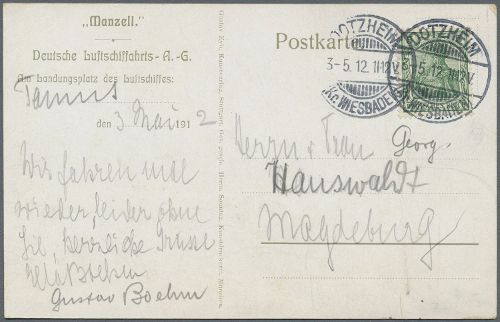 „Manzell."
Deutsche Luftschiffahrts-A.-G.
Am Landungsplatz des Luftschiffes:
Taunus
den 3. Mai 1912
Wir fahren mal
wieder, leider ohne
Sie, herzliche Grüsse
Boehm
Gustav Boehm
Postkarte
DOTZHEIM
3-5.12.11-12V.
(Kr. WIESBADEN)
DOTZHEIM
3-5.12.11-12V.
(Kr. WIESBADEN)
Herrn u Frau
Georg
Hauswaldt
Magdeburg